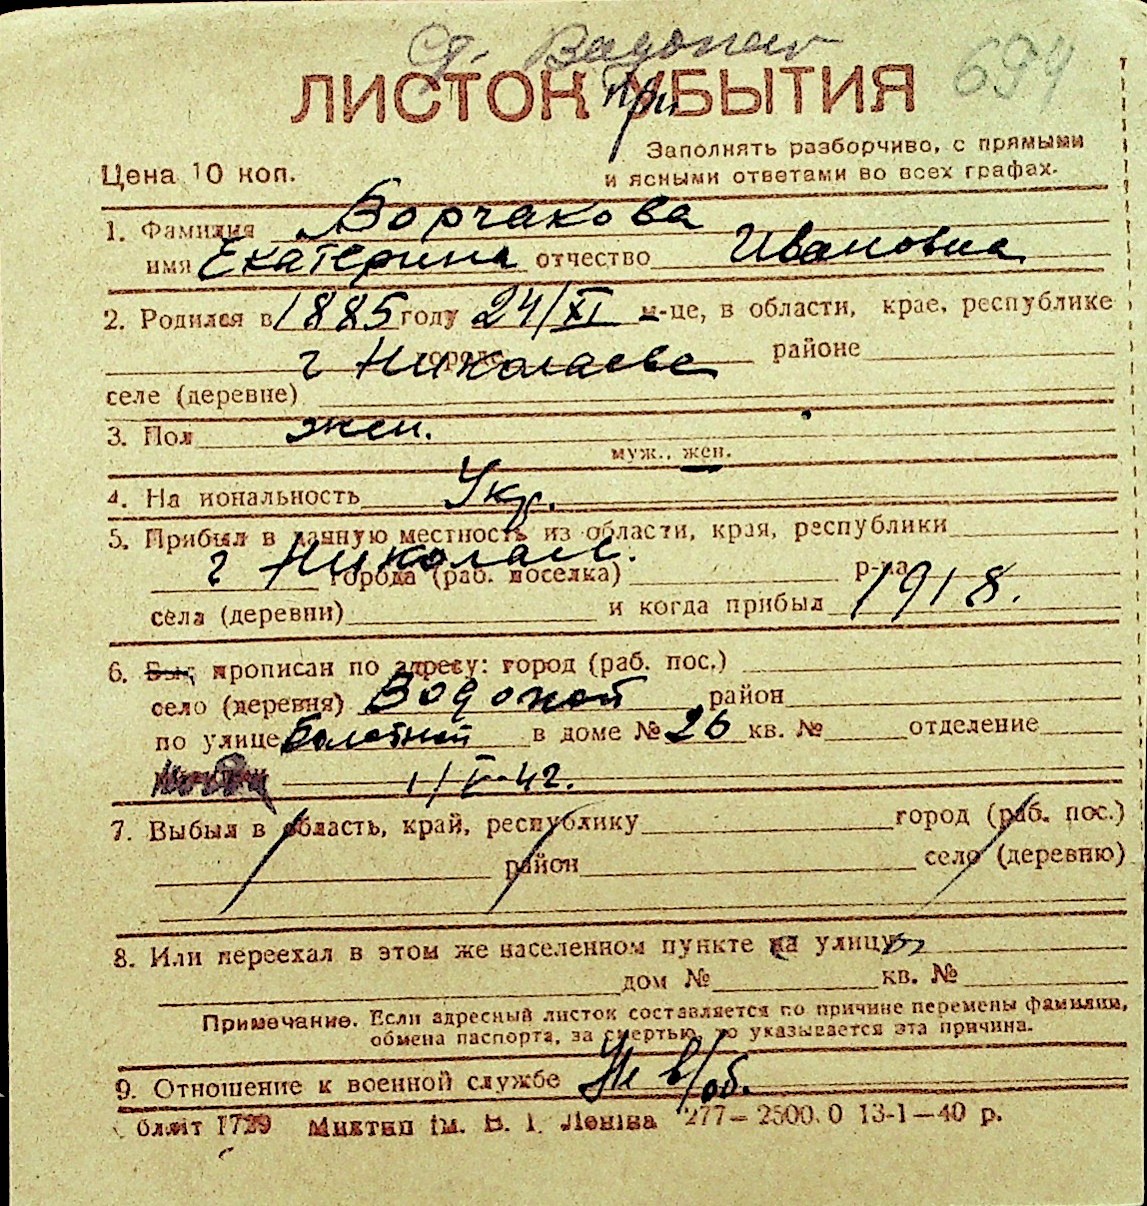 694
ЛИСТОК При УБЫТИЯ
Заполнять разборчиво, с прямыми
Цена 10 коп. и ясными ответами во всех графах.
1. Фамилия Борчакова
имя Екатерина отчество Ивановна
2. Родился в 1885 году 24/XI м-це, в области, крае, республике
г Николаеве городе районе
селе (деревне)
3. Пол жен.
муж., жен.
4. На иональность Укр.
5. Прибыл в данную местность из области, края, республики
г Николаев. города (раб. поселка) р-на
села (деревни) и когда прибыл 1918.
6. Был прописан по адресу: город (раб. пос.)
село (деревня) Водопой район
по улице Болотной в доме № 26 кв. № отделение
1/V-42.
7. Выбыл в область, край, республику город (раб. пос.)
район село (деревню)
8. Или переехал в этом же населенном пункте на улицу
дом № кв. №
Примечание. Если адресный листок составляется по причине перемены фамилии,
обмена паспорта, за смертью, то указывается эта причина.
9. Отношение к военной службе Не в/об.
бліт 1729 Миктип ім. В. І. Леніна 277—2500.0 13-1—40 р.